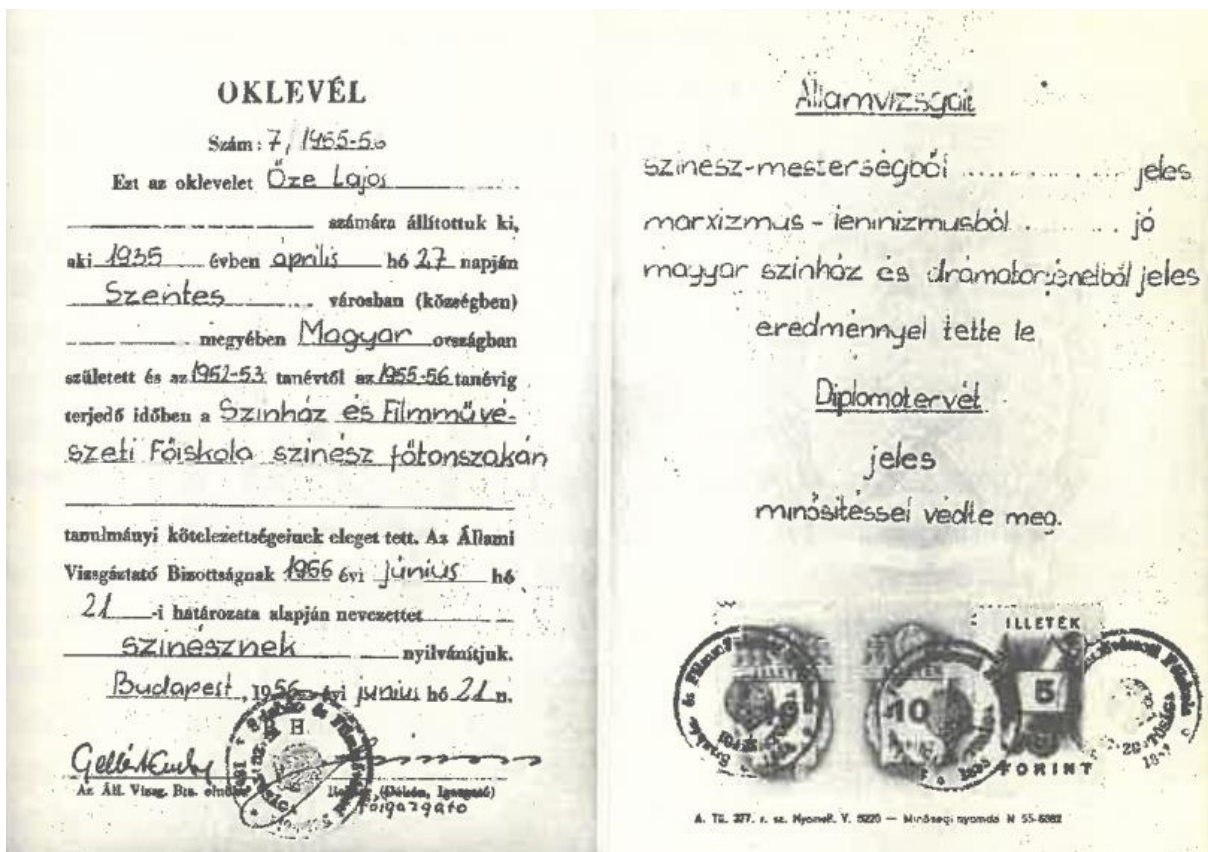 OKLEVÉL
Szám: 7/1955-56
Ezt az oklevelet Őze Lajos
számára állítottuk ki,
aki 1935 évben április hó 27 napján
Szentes városban (községben)
megyében Magyar országban
született és az 1952-53 tanévtől az 1955-56 tanévig
terjedő időben a Színház és Filmművé-
szeti Főiskola színész főtanszakán
tanulmányi kötelezettségeinek eleget tett. Az Állami
Vizsgáztató Bizottságnak 1956 évi június hó
21-i határozata alapján nevezettet
színésznek nyilvánítjuk.
Budapest, 1956 évi június hó 21 n.
Az Áll. Vizsg. Biz. elnöke (Dékán, Igazgató)
Főigazgató
Államvizsgáit
színész-mesterségből .............. jeles
marxizmus-leninizmusból ........ jó
magyar színház és drámatörténelből jeles
eredménnyel tette le
Diplomatervét
jeles
minősítéssel védte meg.
ILLETÉK
10
5
FORINT
A. Tü. 377. r. sz. Nyomell. V. 5220 — Minőségi nyomda N 55-6362